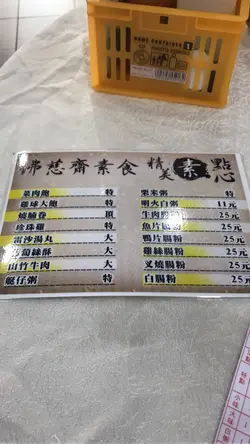 HOME CONTAINER 1
佛慈齋素食 精美素點心
菜肉飽 特
雞球大飽 特
燒腩卷 頂
珍珠雞 特
雷沙湯丸 大
葡萄絲酥 大
山竹牛肉 大
艇仔粥 特
粟米粥 特
明火白粥 11元
牛肉腸粉 25元
魚片腸粉 25元
鴨片腸粉 25元
雞絲腸粉 25元
叉燒腸粉 25元
白腸粉 25元
特點